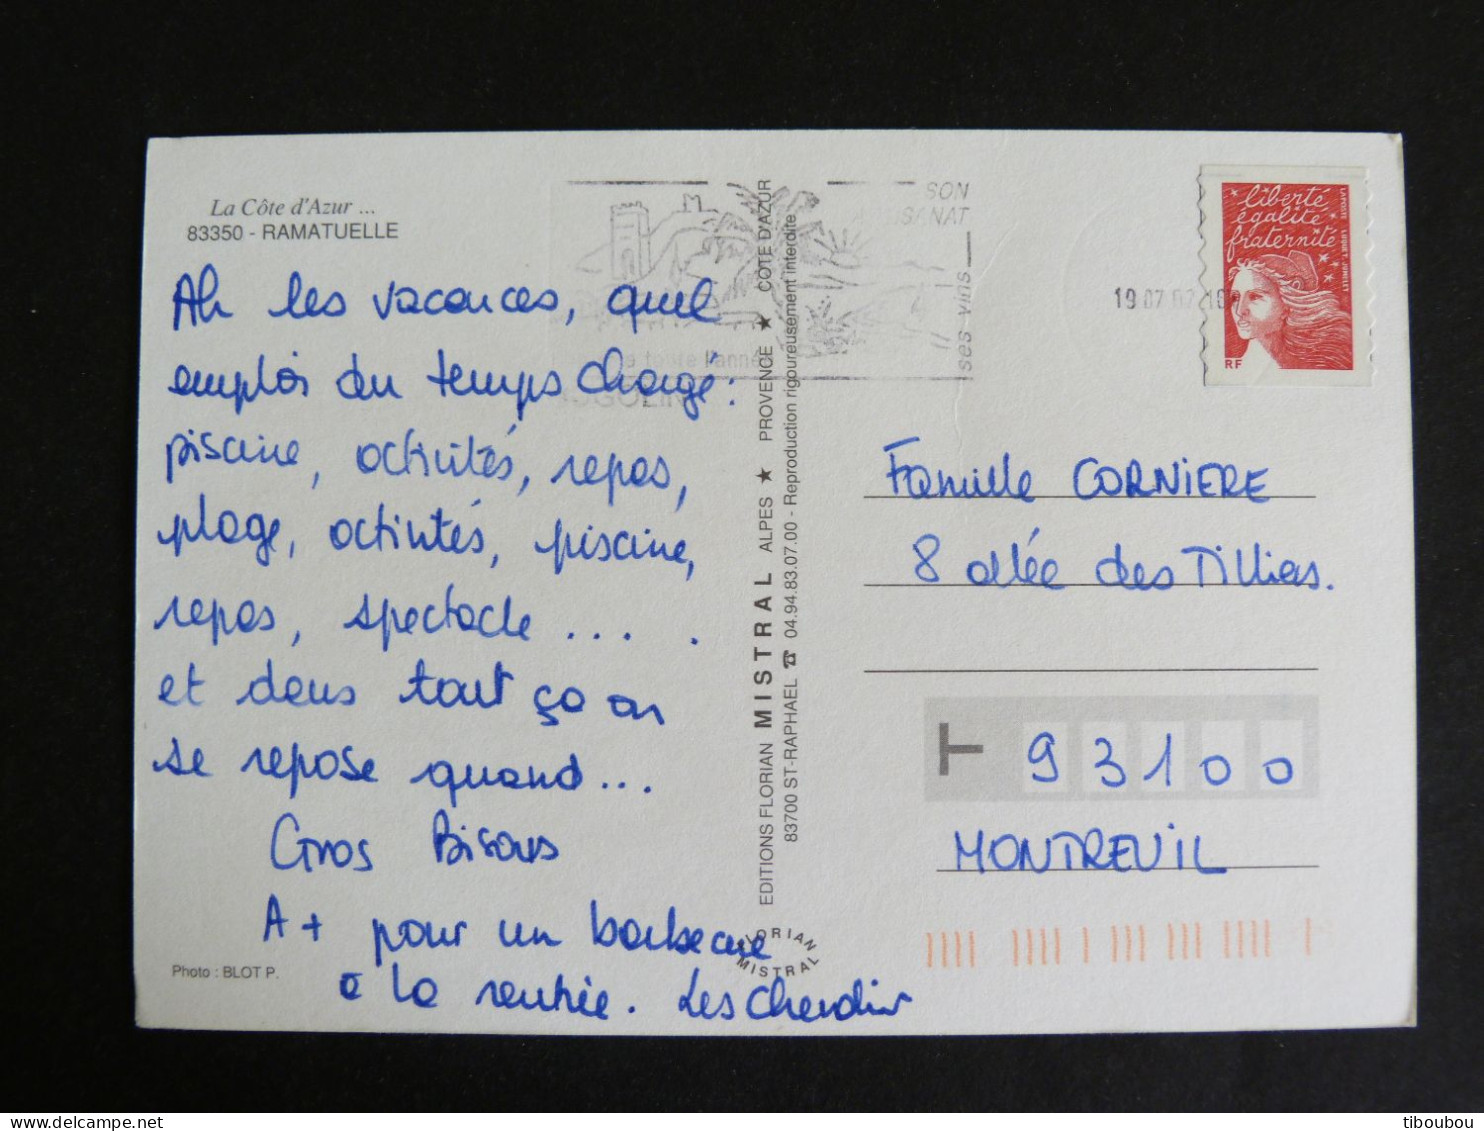 La Côte d'Azur ...
83350 - RAMATUELLE
Ah les vacances, quel
emploi du temps chargé :
piscine, activités, repos,
plage, activités, piscine,
repos, spectacle ... .
et dans tout ça on
se repose quand...
Gros Bisous
A + pour un barbecue
à la rentrée. Les
Photo : BLOT P.
EDITIONS FLORIAN MISTRAL ALPES ★ PROVENCE ★ COTE D'AZUR
83700 ST-RAPHAEL ☎ 04.94.83.07.00 - Reproduction rigoureusement interdite
FLORIAN
MISTRAL
SON
ARTISANAT
ses vins
toute l'année
19 07 02
liberté
égalité
fraternité
LA POSTE LUQUET JUMELET
RF
Famille CORNIERE
8 allée des Tillias.
T 93100
MONTREUIL
tiboubou